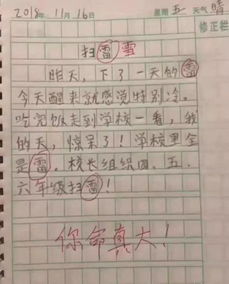 2018年 11月 16日 星期 五 天气 晴
修正栏
扫雷雪
昨天，下了一天的雷
今天醒来就感觉特别冷。
吃完饭走到学校一看，我
的天，惊呆了！学校里全
是雷。校长组织四、五、
六年级扫雷！
你命真大！